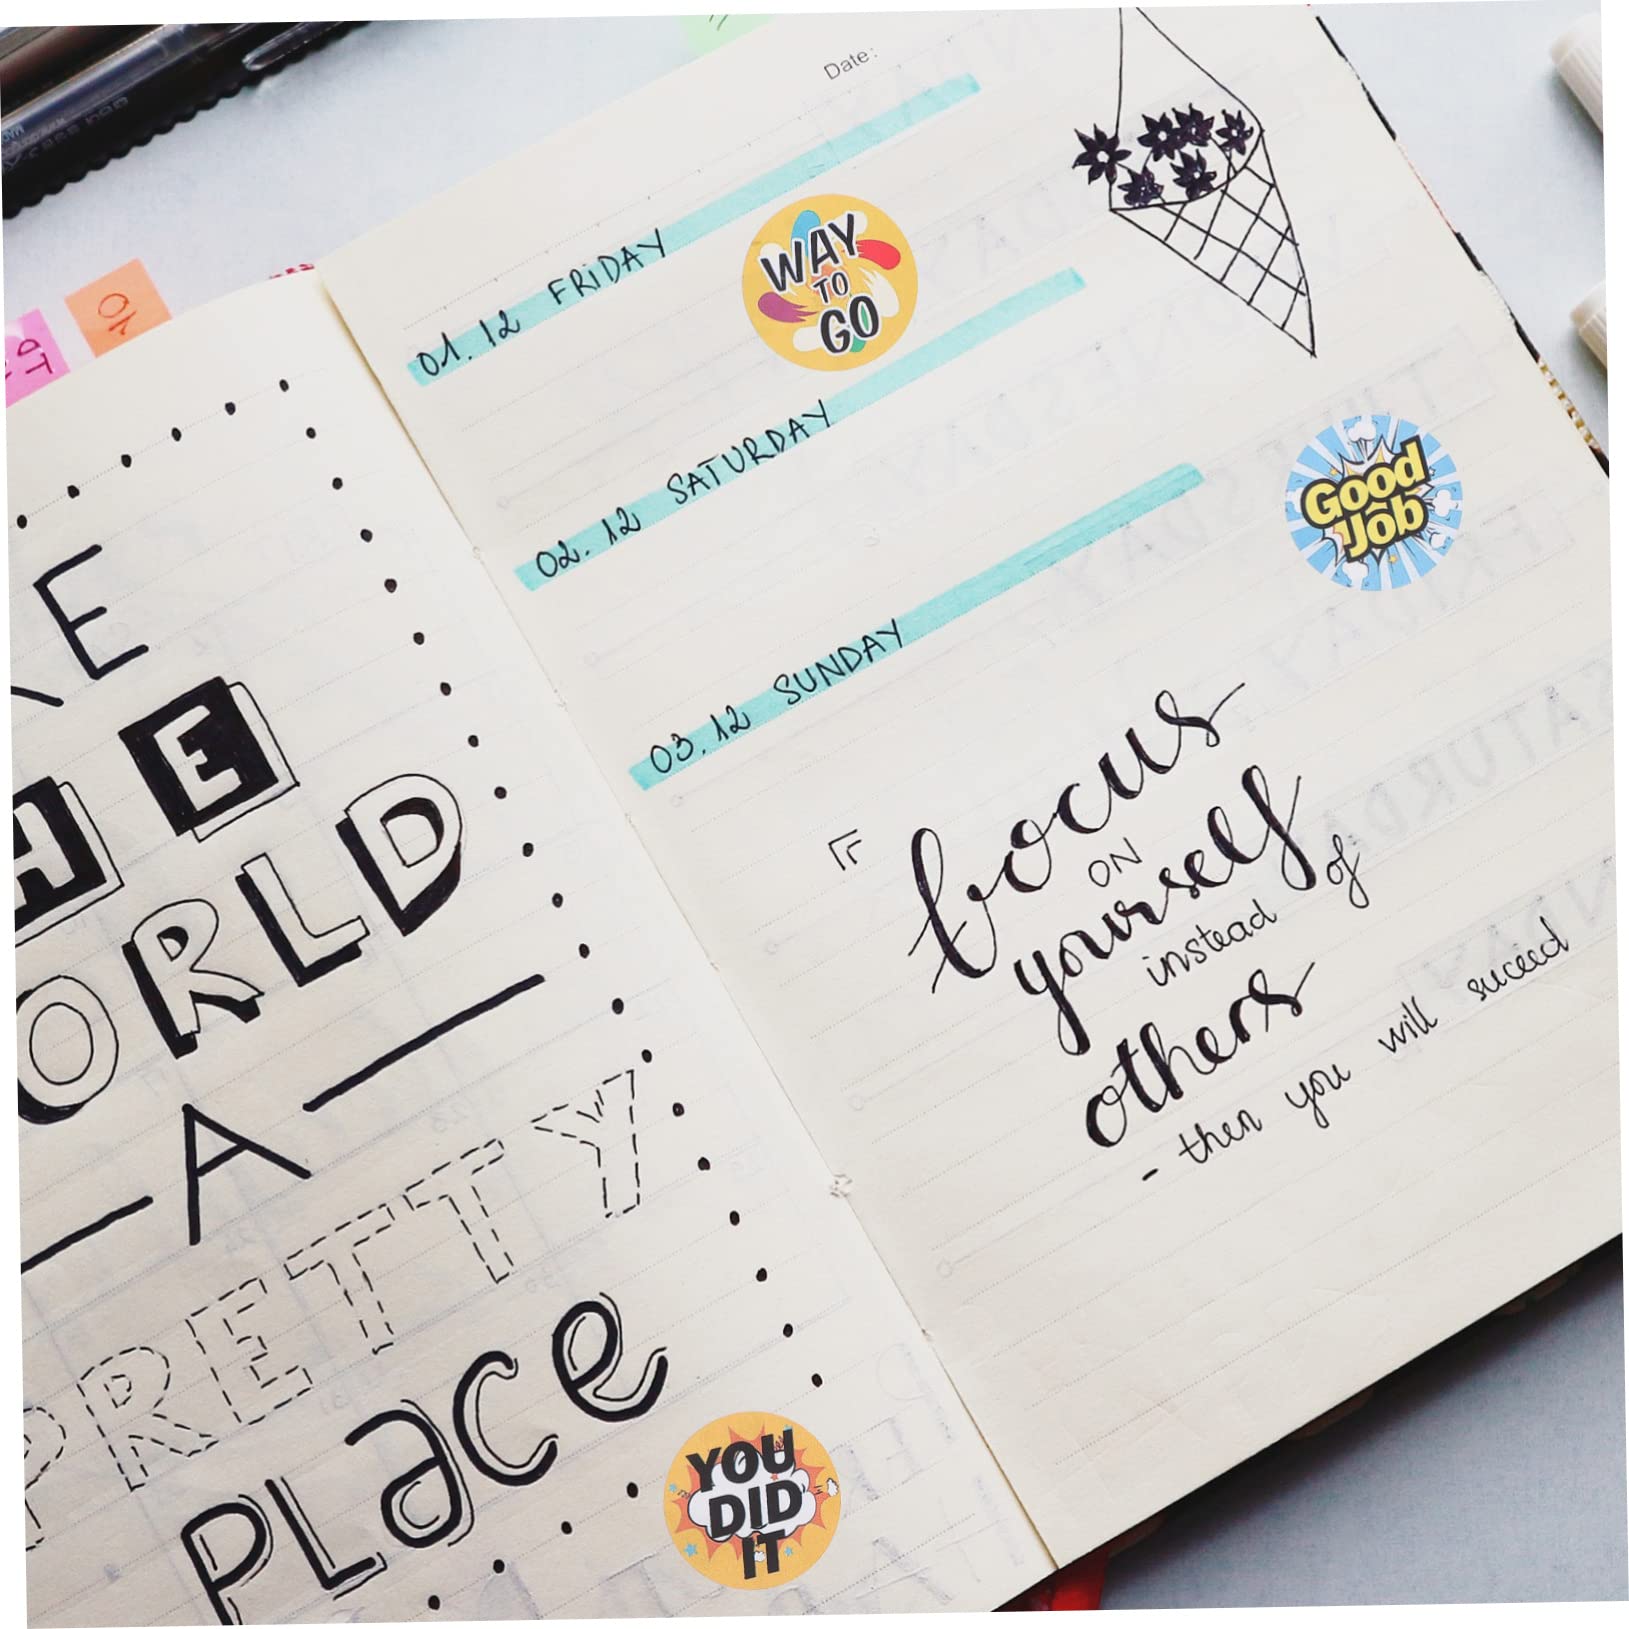 KE
HE
ORLD
A
PRETTY
PLace
YOU
DID
IT
Date:
01.12 FRIDAY
WAY
TO
GO
02.12 SATURDAY
Good
Job
03.12 SUNDAY
focus
ON
yourself
instead of
others
- then you will suceed